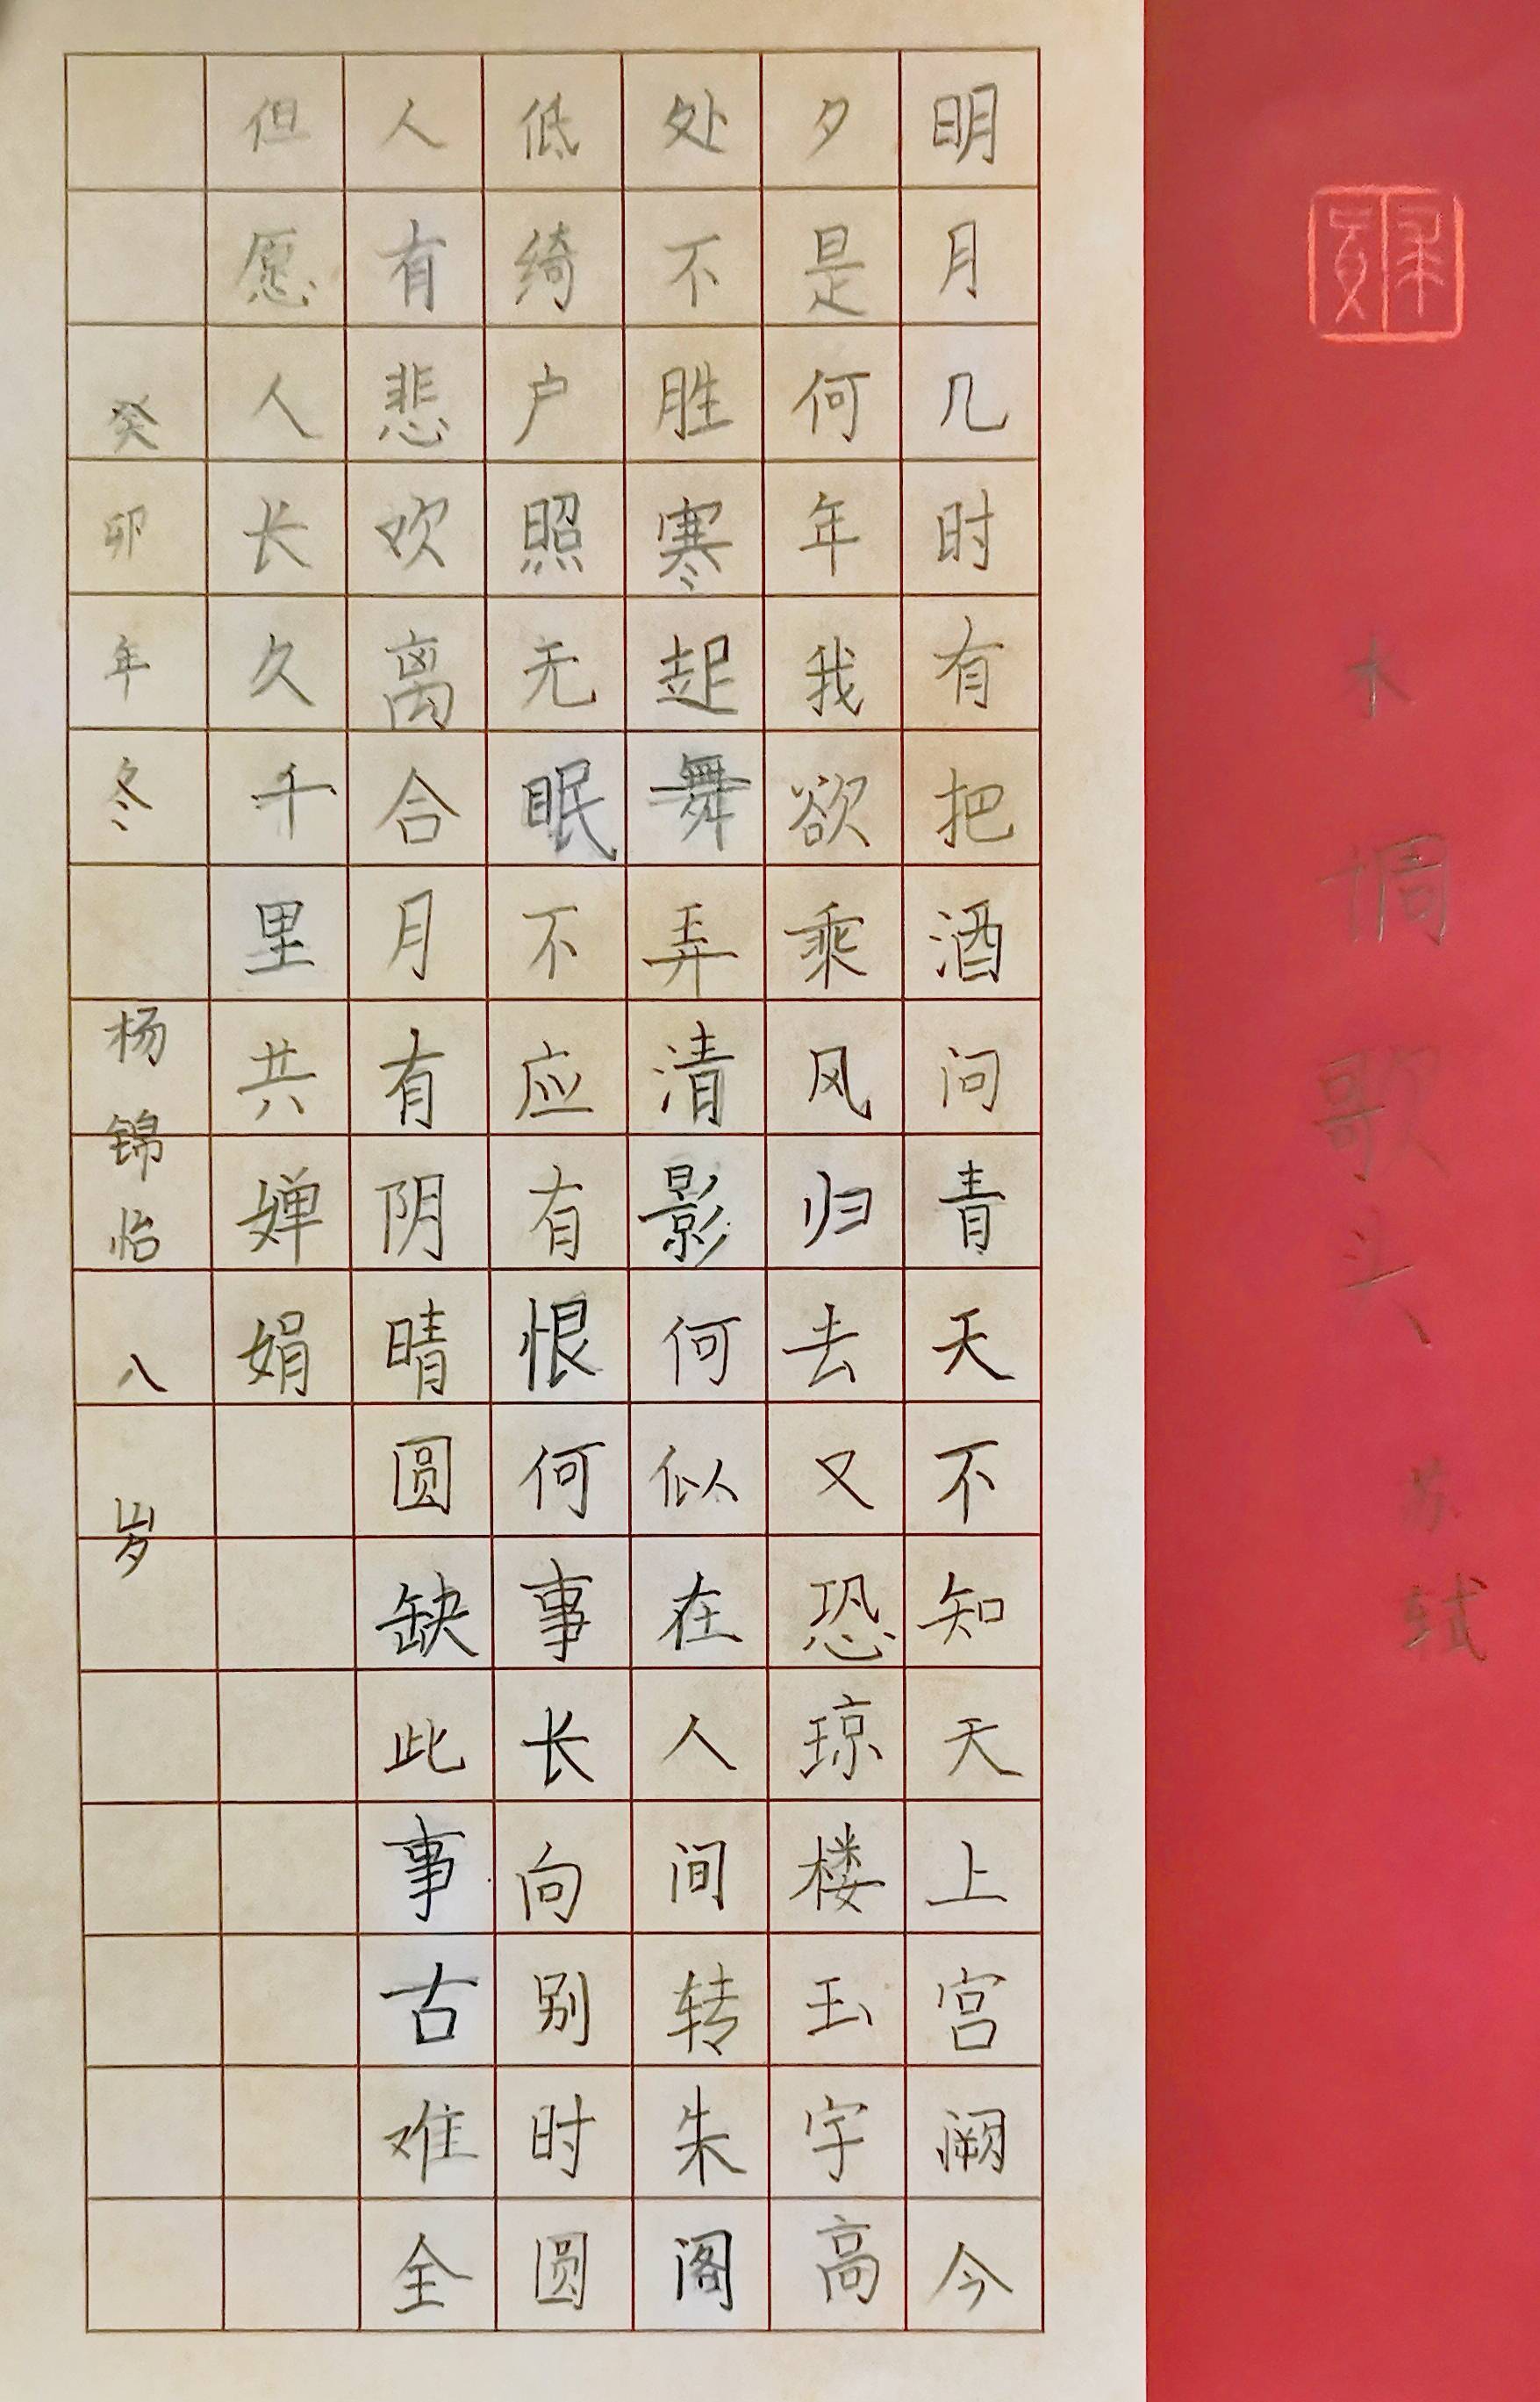 水调歌头
苏轼
明月几时有把酒问青天不知天上宫阙今
夕是何年我欲乘风归去又恐琼楼玉宇高
处不胜寒起舞弄清影何似在人间转朱阁
低绮户照无眠不应有恨何事长向别时圆
人有悲欢离合月有阴晴圆缺此事古难全
但愿人长久千里共婵娟
癸卯年冬 杨锦怡 八岁